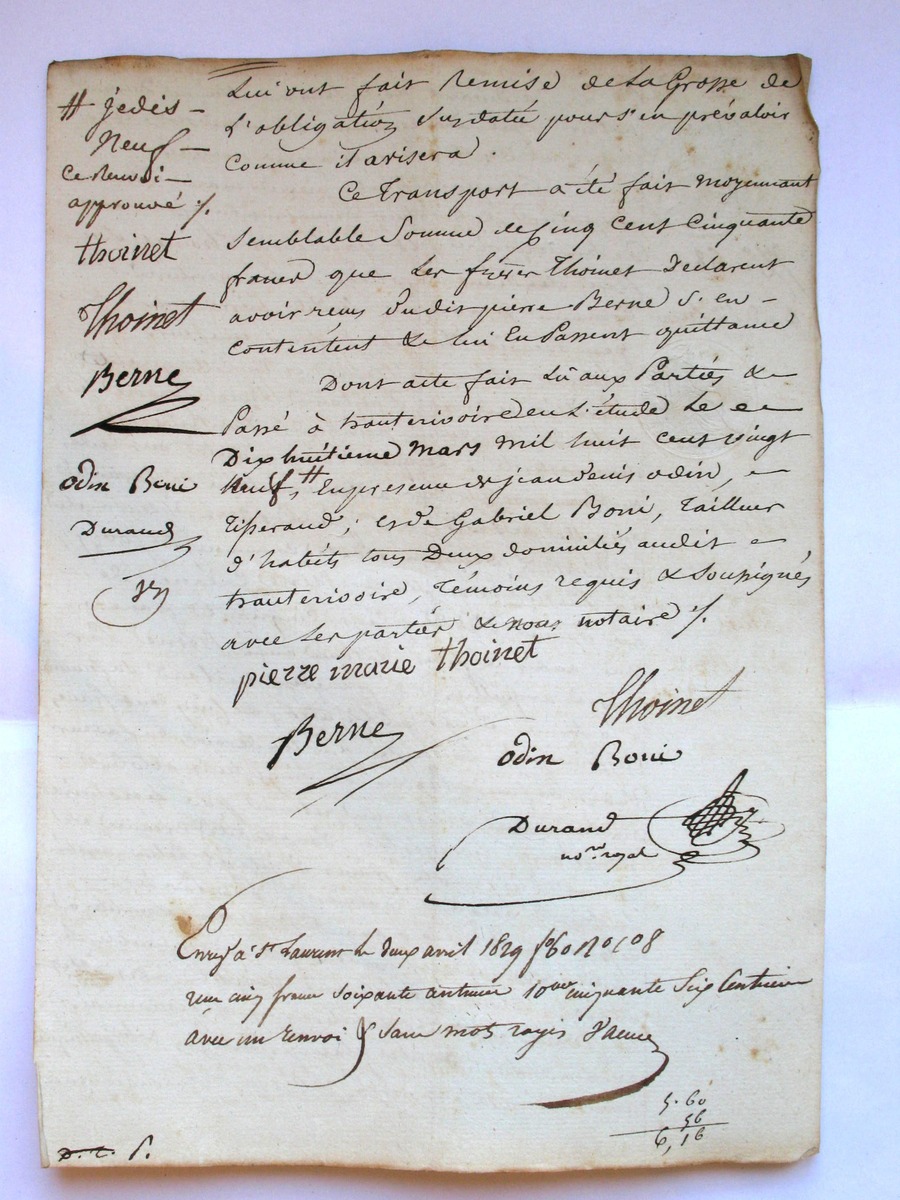 # je dis
neuf
ce renvoi
approuvé ./.
thoinet
Thoinet
Berne
odin Boni
Durand
Lui ont fait Remise de La Grosse de
L'obligation susdatée pour s'en prévaloir
comme il avisera.
Ce Transport a été fait moyennant
semblable somme de Cinq cent Cinquante
francs que Les frères Thoinet Déclarent
avoir reçus dudit pierre Berne s'en
contentent & lui En Passent quittance
Dont acte fait Lu aux Parties &
Passé à hauterivoire en L'étude Le
Dix huitième mars mil huit cent vingt
neuf, # En presence de jean denis odin,
Tisserand, et de Gabriel Boni, Tailleur
d'habits tous Deux domiciliés audit
hauterivoire, Témoins requis & soussignés
avec Les parties & nous notaire ./.
pierre marie thoinet
Thoinet
Berne
odin Boni
Durand
no.re royal
Enreg. à St Laurent le deux avril 1829 fo 60
reçu cinq francs soixante centimes 10me cinquante Six Centimes
avec un renvoi & sans mots rayés
5.60
56
6,16